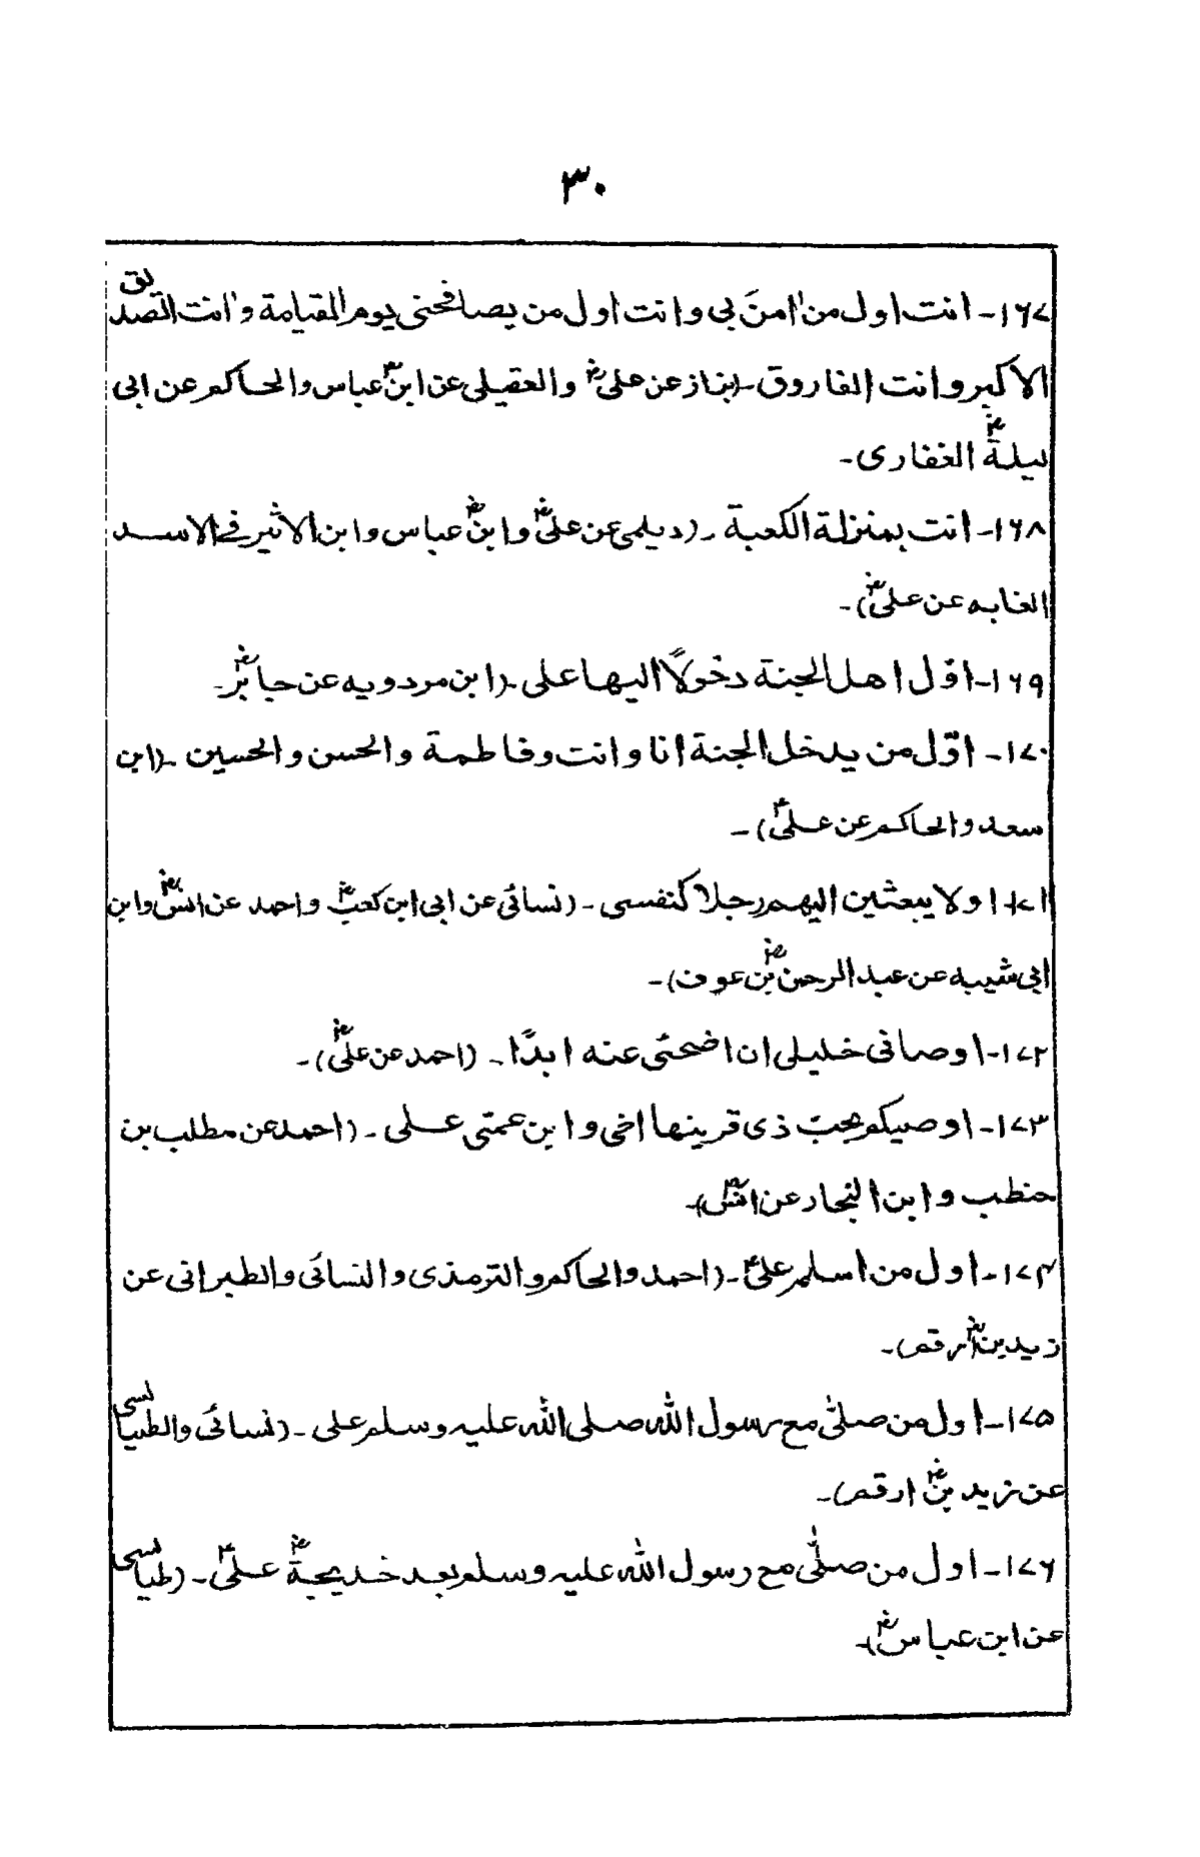 ۳۰
۱۶۷۔ انت اول من اٰمنَ بی و انت اول من یصافحنی یوم القیامة و انت الصدیق
الاکبر و انت الفاروق۔ (بزاز عن علیؓ والعقیلی عن ابنؓ عباس والحاکم عن ابی
لیلةؓ الغفاری۔
۱۶۸۔ انت بمنزلة الکعبة ۔ (دیلمی عن علیؓ و ابنؓ عباس و ابن الاثیر فی الاسد
الغابه عن علیؓ)۔
۱۶۹۔ اوّل اهل الجنة دخولًا الیها علی ۔ (ابن مردویه عن جابرؓ۔
۱۷۰۔ اوّل من یدخل الجنة انا و انت و فاطمة و الحسن و الحسین ۔ (ابن
سعد و الحاکم عن علیؓ) ۔
۱۷۱ اولا یبعثین الیهم رجلا کنفسی ۔ (نسائی عن ابی ابن کعبؓ و احمد عن انسؓ و ابن
ابی شیبه عن عبد الرحمنؓ بن عوف)۔
۱۷۲۔ اوصانی خلیلی ان اضحّی عنه ابدًا ۔ (احمد عن علیؓ)۔
۱۷۳۔ اوصیکم بحبّ ذی قرینها اخی و ابن عمتی علی ۔ (احمد عن مطلب بن
حنطب و ابن النجار عن انسؓ)۔
۱۷۴۔ اول من اسلم علیؓ ۔ (احمد و الحاکم و الترمذی و النسائی و الطبرانی عن
زید بنؓ ارقم)۔
۱۷۵۔ اول من صلّی مع رسول اللّٰه صلی اللّٰه علیه وسلم علی ۔ (نسائی والطیالسی
عن زید بنؓ ارقم)۔
۱۷۶۔ اول من صلّٰی مع رسول اللّٰه علیه وسلم بعد خدیجةؓ علیؓ ۔ (طیالسی
عن ابن عباسؓ)۔